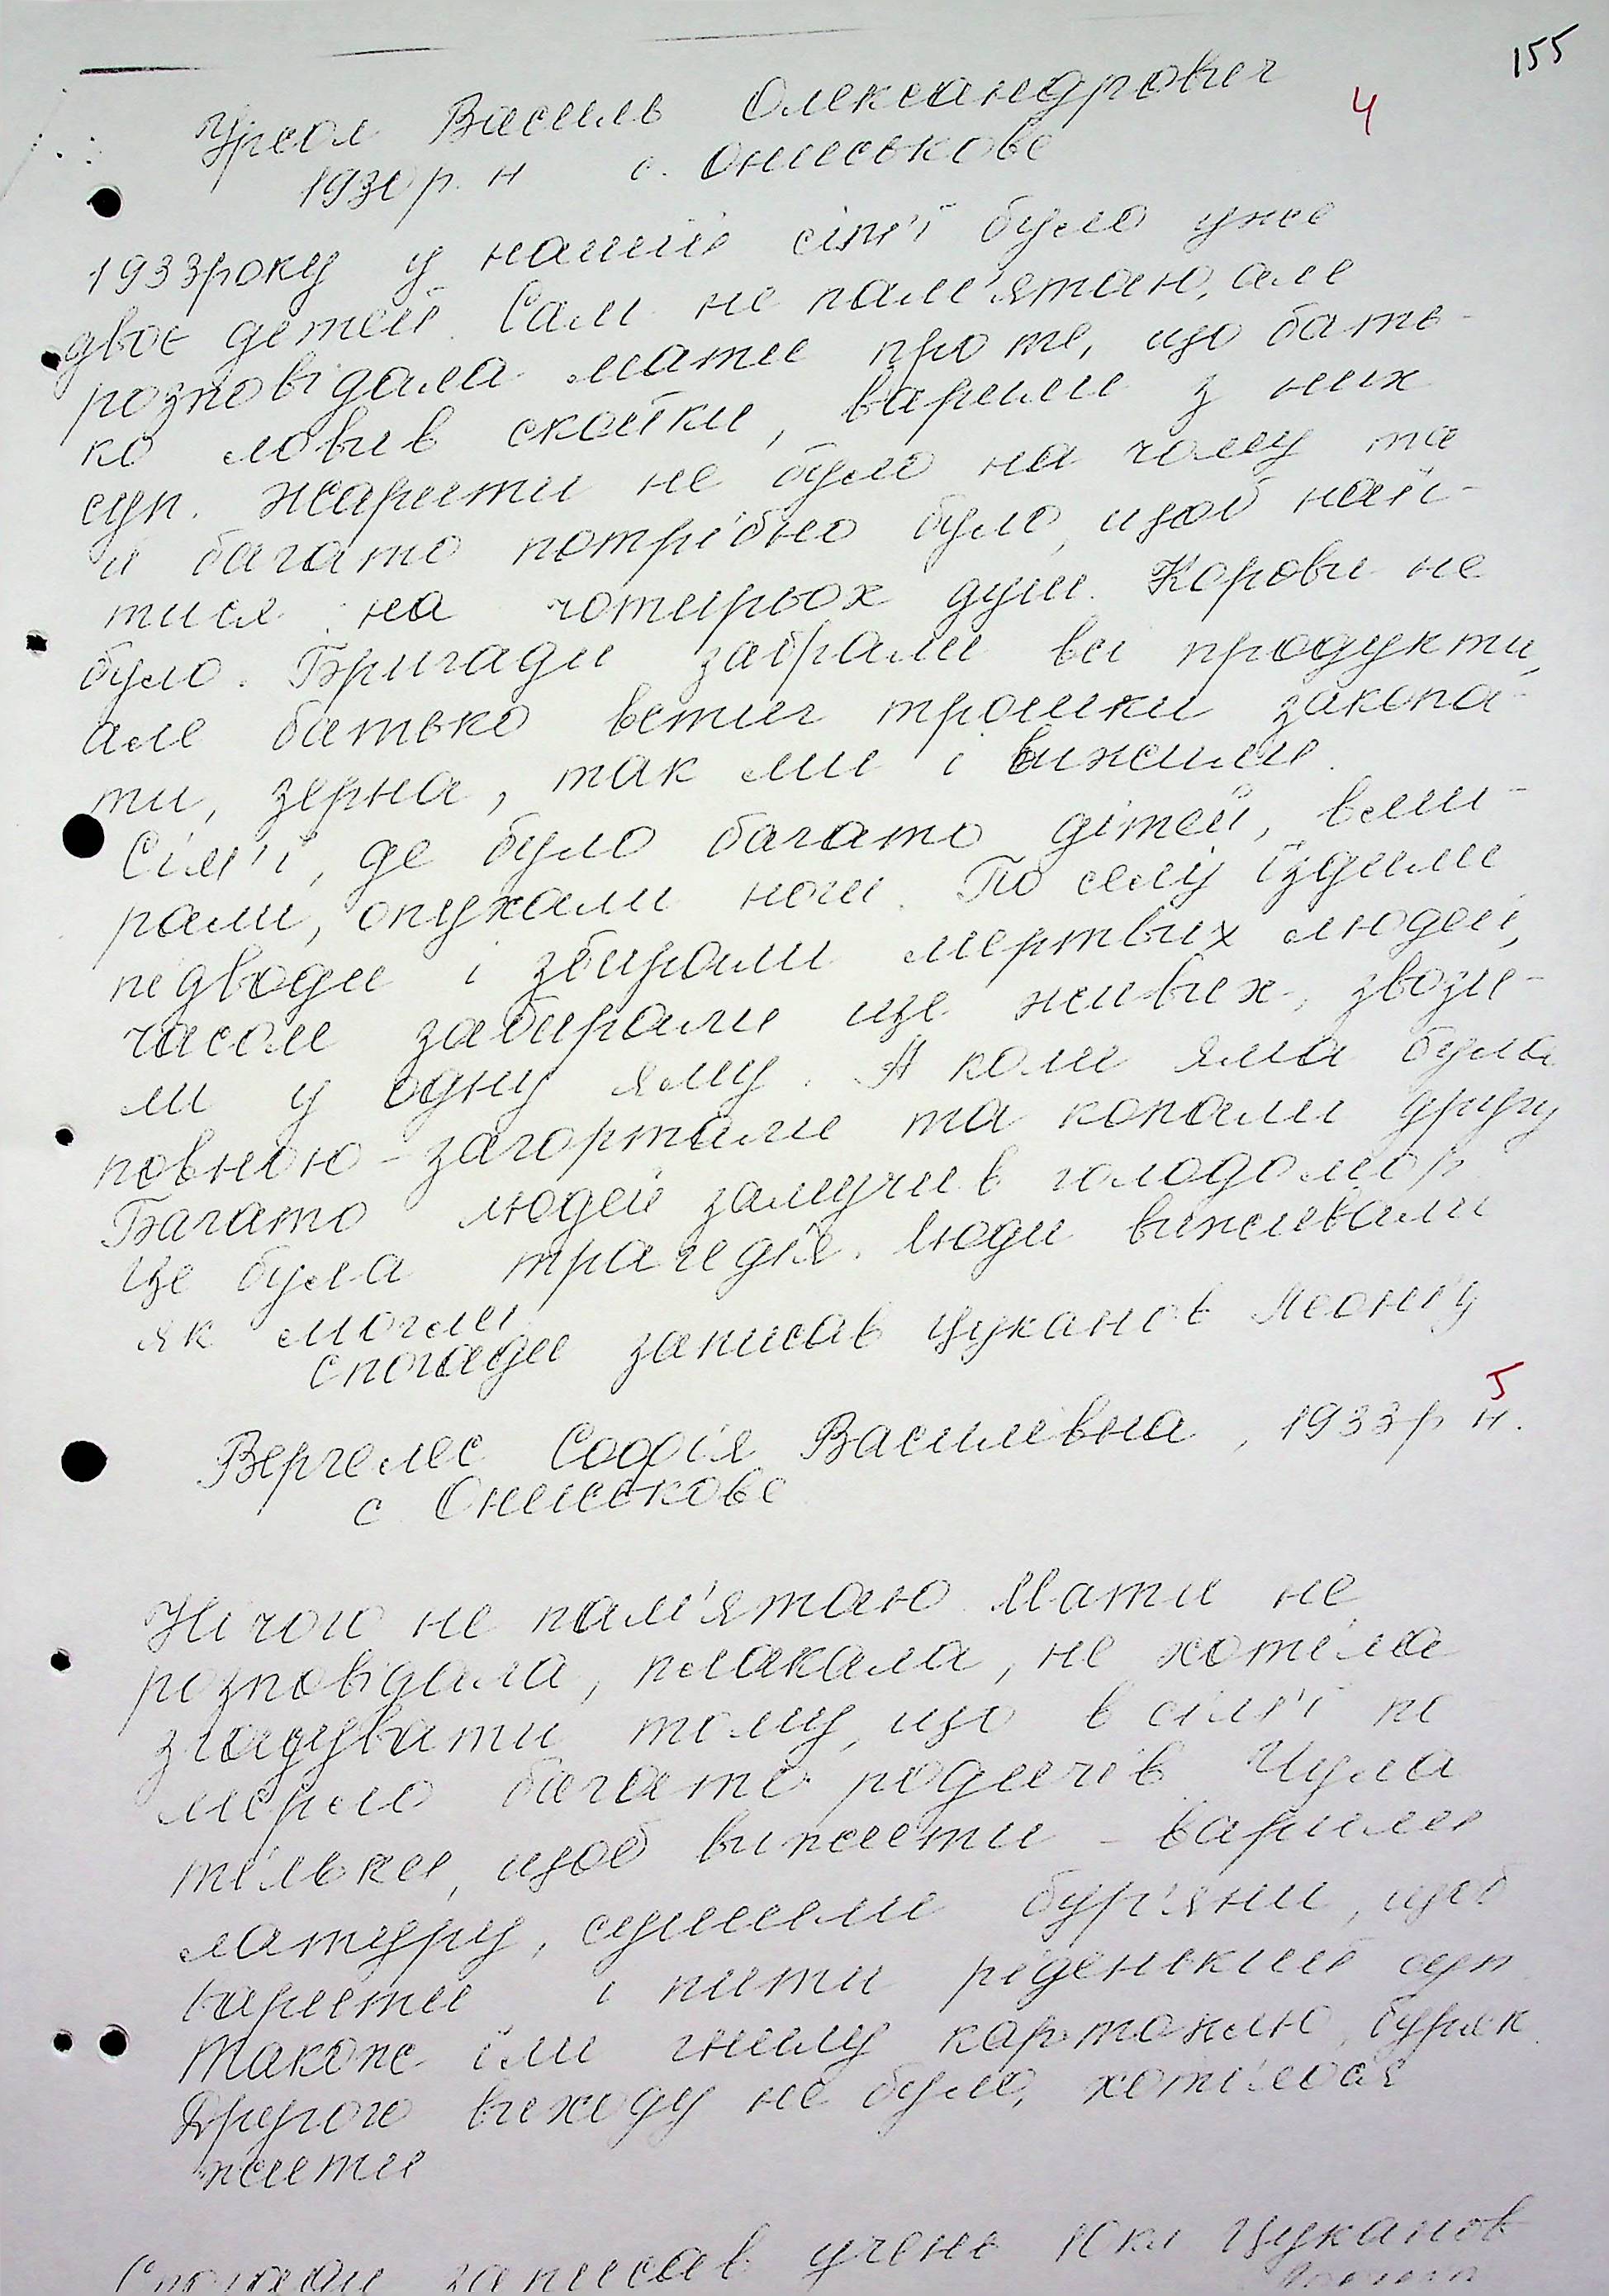 155
4
Урсол Василь Олександрович
1930 р. н с. Ониськове
1933року у нашій сім'ї було уже
двоє детей. Сам не пам'ятаю, але
розповідала мати про те, що бать-
ко ловив скойки, варили з них
суп. Жарити не було на чому та
й багато потрібно було, щоб наїс-
тися на чотирьох душ. Корови не
було. Бригади забрали всі продукти,
але батько встиг трошки закопа-
ти, зерна, так ми і вижили.
Сім'ї, де було багато дітей, вми-
рали, опухали ноги. По селу їздили
підводи і збирали мертвих людей,
часом забирали ще живих, звози-
ли у одну яму. А коли яма була
повною - загортали та копали другу
Багато людей замучив голодомор
Це була трагедія. Люди виживали
як могли.
Спогади записав Цуканов Леонід
5
Вергелес Софія Василівна, 1933р н.
с Ониськове
Нічого не пам'ятаю Мати не
розповідала, плакала, не хотіла
згадувати тому, що в сім'ї по
мерло багато родичів Чула
тільки, щоб вижити - варили
латуру, сушили бур'яни, щоб
варити і пити ріденький суп
також їли гнилу картоплю, буряк.
Другого виходу не було, хотілося
жити
Спогади записав учень 10кл Цуканов